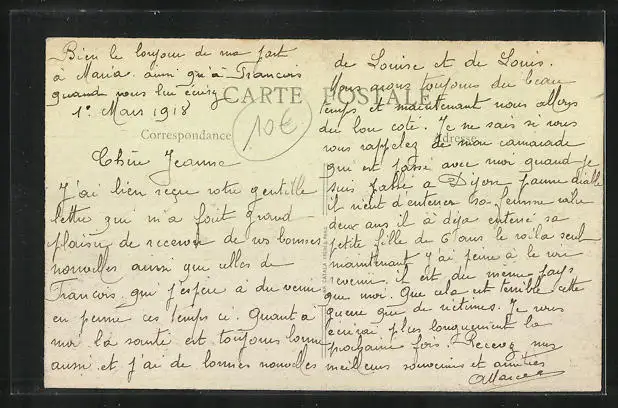 Bien le bonjour de ma part
à Maria ainsi qu'à Francois
quand vous lui écrirez
1er Mars 1918
CARTE POSTALE
Correspondance
Adresse
10€
Chère Jeanne
J'ai bien reçue votre gentille
lettre qui m'a fait grand
plaisir de recevoir de vos bonnes
nouvelles ainsi que celles de
Francois qui j'espère à du venir
en perme ces temps ci. Quant à
moi la santé est toujours bonne
aussi et j'ai de bonnes nouvelles
de Louise et de Louis.
Nous avons toujours du beau
temps et maintenant nous allons
du bon coté. Je ne sais si vous
vous rappelez de mon camarade
qui est passé avec moi quand je
suis passé a Dijon pauvre diable
il vient d'enterrer sa femme
deux ans il à déja enterré sa
petite fille de 6 ans le voila seul
maintenant j'ai peine à le voir
revenir il est du meme pays
que moi. Que cela est terrible cette
guerre que de victimes. Je vous
écrirai plus longuement la
prochaine fois. Recevez mes
meilleurs souvenirs et amitiés